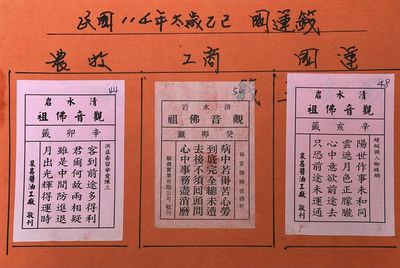 民國114年太歲乙巳 國運籤
農牧
工商
國運
清水岩
觀音佛祖
辛卯籤
客到前途多得利
君爾何故兩相疑
雖是中間防進退
月出光輝得運時
泉昌醬油工廠 敬刊
清水岩
觀音佛祖
癸卯籤
病中若得苦心勞
到底完全總未遭
去後不須回頭問
心中事務盡消磨
48
清水岩
觀音佛祖
辛亥籤
蜻蜓誤入蜘蛛網
陽世作事未和同
雲遮月色正朦朧
心中意欲前途去
只恐前途未運通
泉昌醬油工廠 敬刊